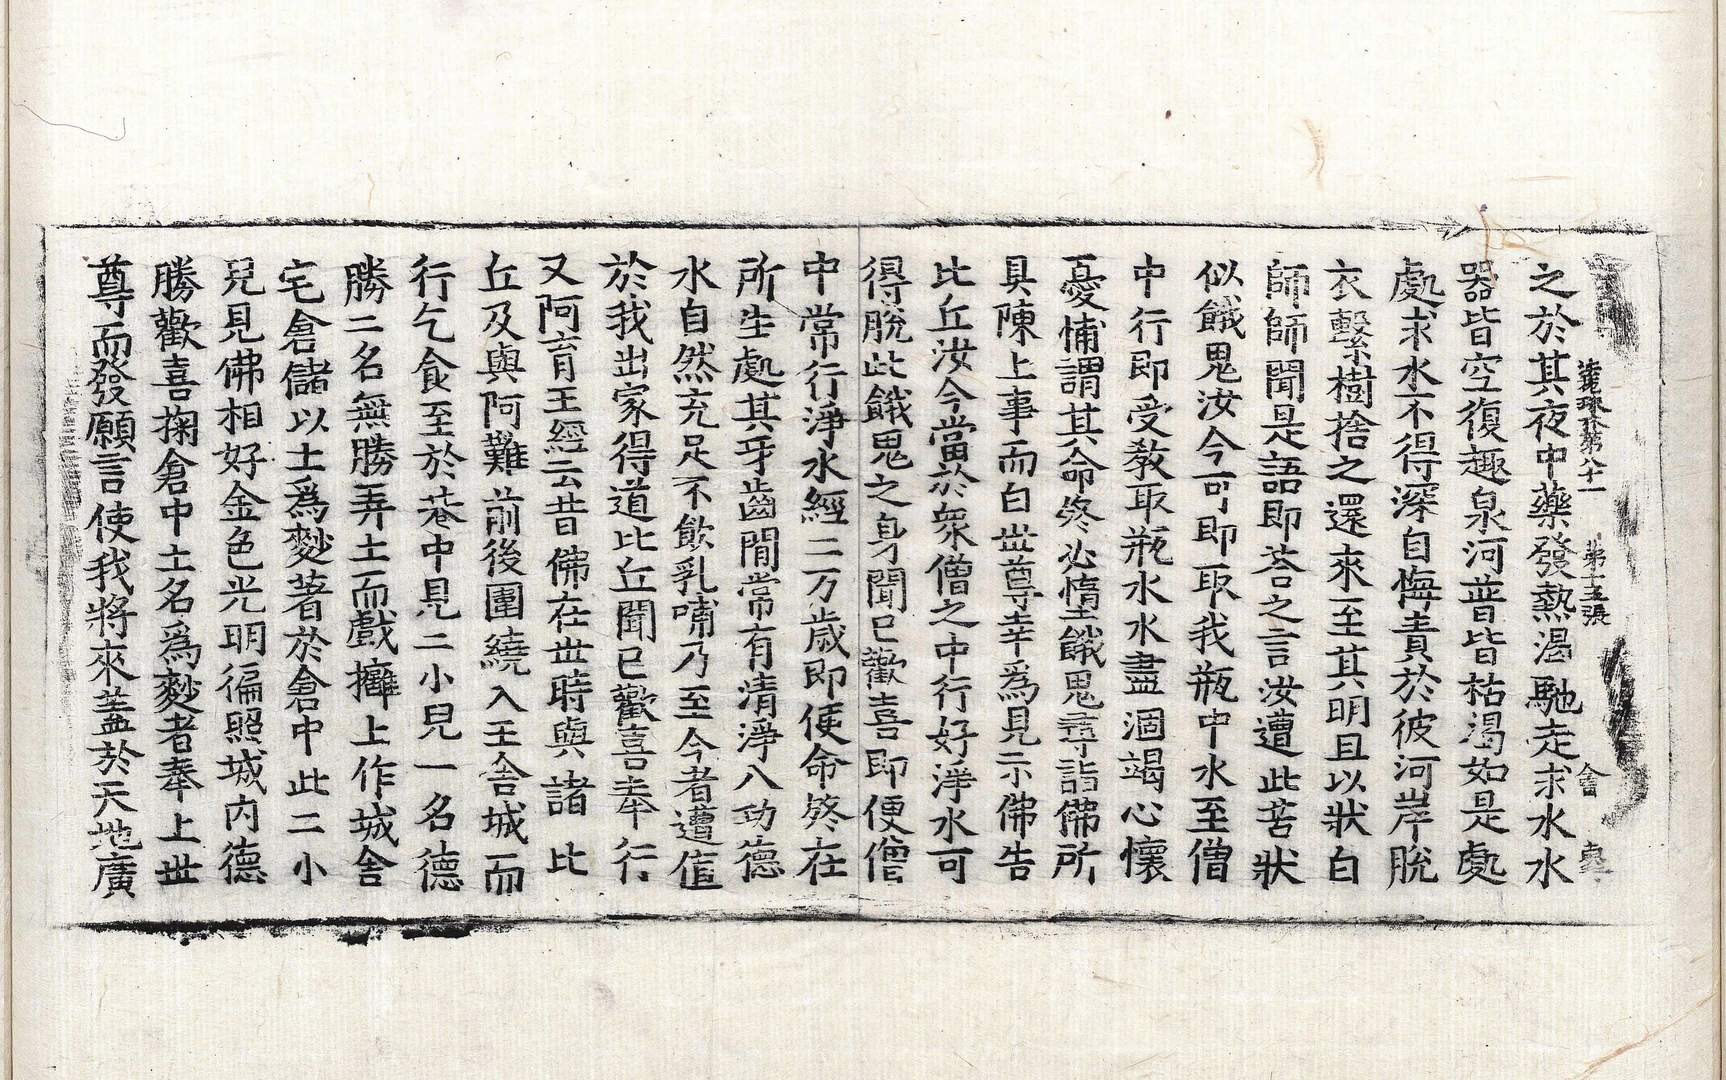 法苑珠林第八十一 第十五張
之於其夜中藥發熱渴馳走求水水
器皆空復趣泉河普皆枯渴如是處
處求水不得深自悔責於彼河岸脫
衣繫樹捨之還來至其明旦以狀白
師師聞是語即荅之言汝遭此苦狀
似餓鬼汝今可即取我瓶中水至僧
中行即受教取瓶水水盡涸竭心懷
憂怖謂其命終必墮餓鬼尋詣佛所
具陳上事而白世尊幸爲見示佛告
比丘汝今當於衆僧之中行好淨水可
得脫此餓鬼之身聞已歡喜即便僧
中常行淨水經二万歲即便命終在
所生處其牙齒閒常有清淨八功德
水自然充足不飲乳哺乃至今者遭值
於我出家得道比丘聞已歡喜奉行
又阿育王經云昔佛在世時與諸比
丘及與阿難前後圍繞入王舍城而
行乞食至於巷中見二小兒一名德
勝二名無勝弄土而戲擁土作城舍
宅倉儲以土爲麨著於倉中此二小
兒見佛相好金色光明徧照城内德
勝歡喜掬倉中土名爲麨者奉上世
尊而發願言使我將來蓋於天地廣